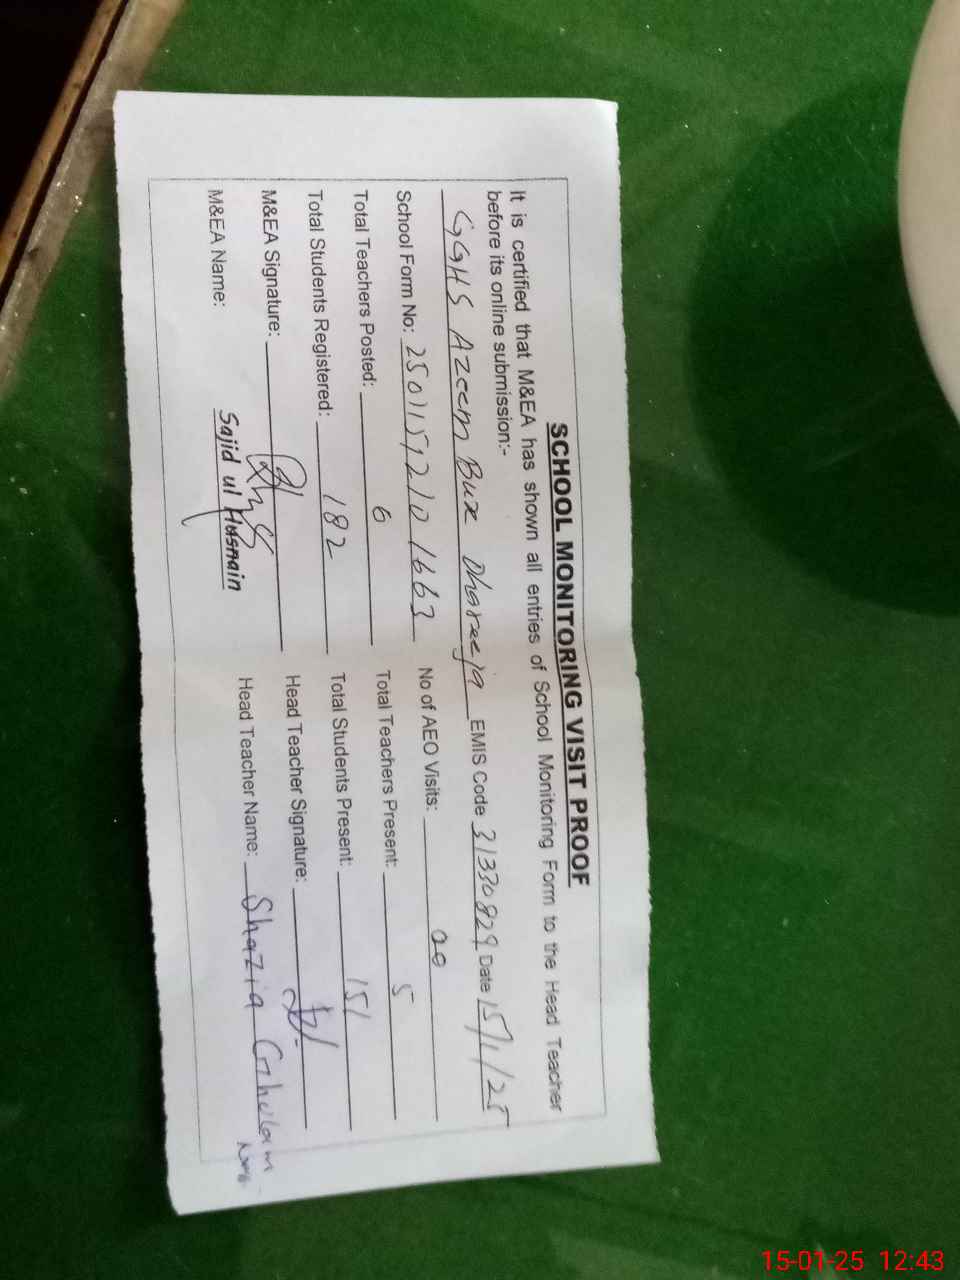 SCHOOL MONITORING VISIT PROOF
It is certified that M&EA has shown all entries of School Monitoring Form to the Head Teacher
before its online submission:-
GGHS Azeem Bux Dhareeja EMIS Code 31330829 Date 15/1/25
School Form No: No of AEO Visits: 00
Total Teachers Posted: 6 Total Teachers Present: 5
Total Students Registered: 182 Total Students Present: 151
M&EA Signature: Head Teacher Signature:
M&EA Name: Sajid ul Hasnain Head Teacher Name: Shazia Ghulam
15-01-25 12:43